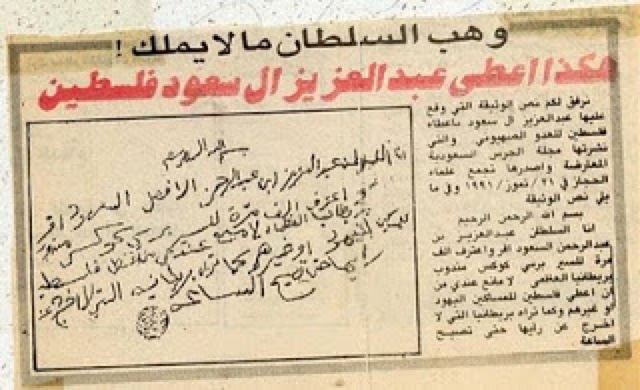 وهب السلطان ما لا يملك !
هكذا اعطى عبد العزيز ال سعود فلسطين
نرفق لكم نص الوثيقة التي وقع
عليها عبدالعزيز ال سعود باعطاء
فلسطين للعدو الصهيوني والتي
نشرتها مجلة الحرس السعودية
المعارضة واصدرها تجمع علماء
الحجاز في ٢١/ تموز/ ١٩٩١ وفي ما
يلي نص الوثيقة
بسم الله الرحمن الرحيم
انا السلطان عبدالعزيز بن
عبدالرحمن السعود اقر واعترف الف
مرة للسير برسي كوكس مندوب
بريطانيا العظمى لا مانع عندي من
ان اعطي فلسطين للمساكين اليهود
او غيرهم وكما تراه بريطانيا التي لا
اخرج عن رايها حتى تصيح
الساعة
بسم الله الرحمن الرحيم
انا السلطان عبد العزيز ابن عبد الرحمن ال السعود اقر
و اعترف الف مرة للسير برسي كوكس مندوب
بريطانيا العظماء لا مانع عندي فلسطين
او غيرهم كما تراه بريطانيه التي لا اخرج عن
رايها حتى تصيح الساعه